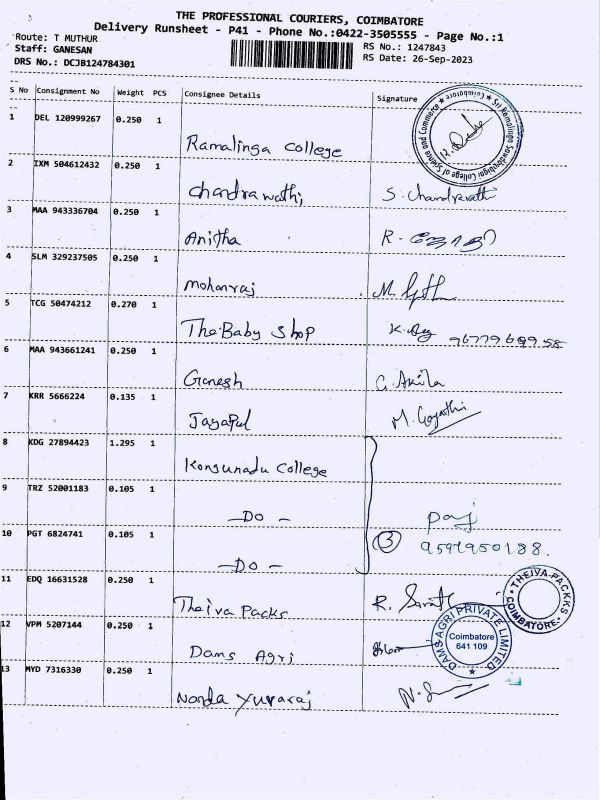 THE PROFESSIONAL COURIERS, COIMBATORE
Delivery Runsheet - P41 - Phone No.:0422-3505555 - Page No.:1
Route: T MUTHUR
RS No.: 1247843
Staff: GANESAN
RS Date: 26-Sep-2023
DRS No.: DCJB124784301
S No Consignment No Weight PCS Consignee Details Signature
1 DEL 120999267 0.250 1 Ramalinga College
2 IXM 504612432 0.250 1 Chandrawathi S. Chandravathi
3 MAA 943336704 0.250 1 Anitha R.
4 SLM 329237505 0.250 1 Mohanraj M.
5 TCG 50474212 0.270 1 The Baby Shop K.
6 MAA 943661241 0.250 1 Ganesh G. Akila
7 KRR 5666224 0.135 1 Jayapal M. Gayathri
8 KDG 27894423 1.295 1 Kongunadu College
9 TRZ 52001183 0.105 1 - DO -
10 PGT 6824741 0.105 1 - DO - 3 9597950188.
11 EDQ 16631528 0.250 1 Theiva Packs R.
THEIVA-PACKKS
COIMBATORE
12 VPM 5207144 0.250 1 Dams Agri
DAMS AGRI PRIVATE LIMITED
Coimbatore
641 109
13 MYD 7316330 0.250 1 Nanda Yuvaraj N.